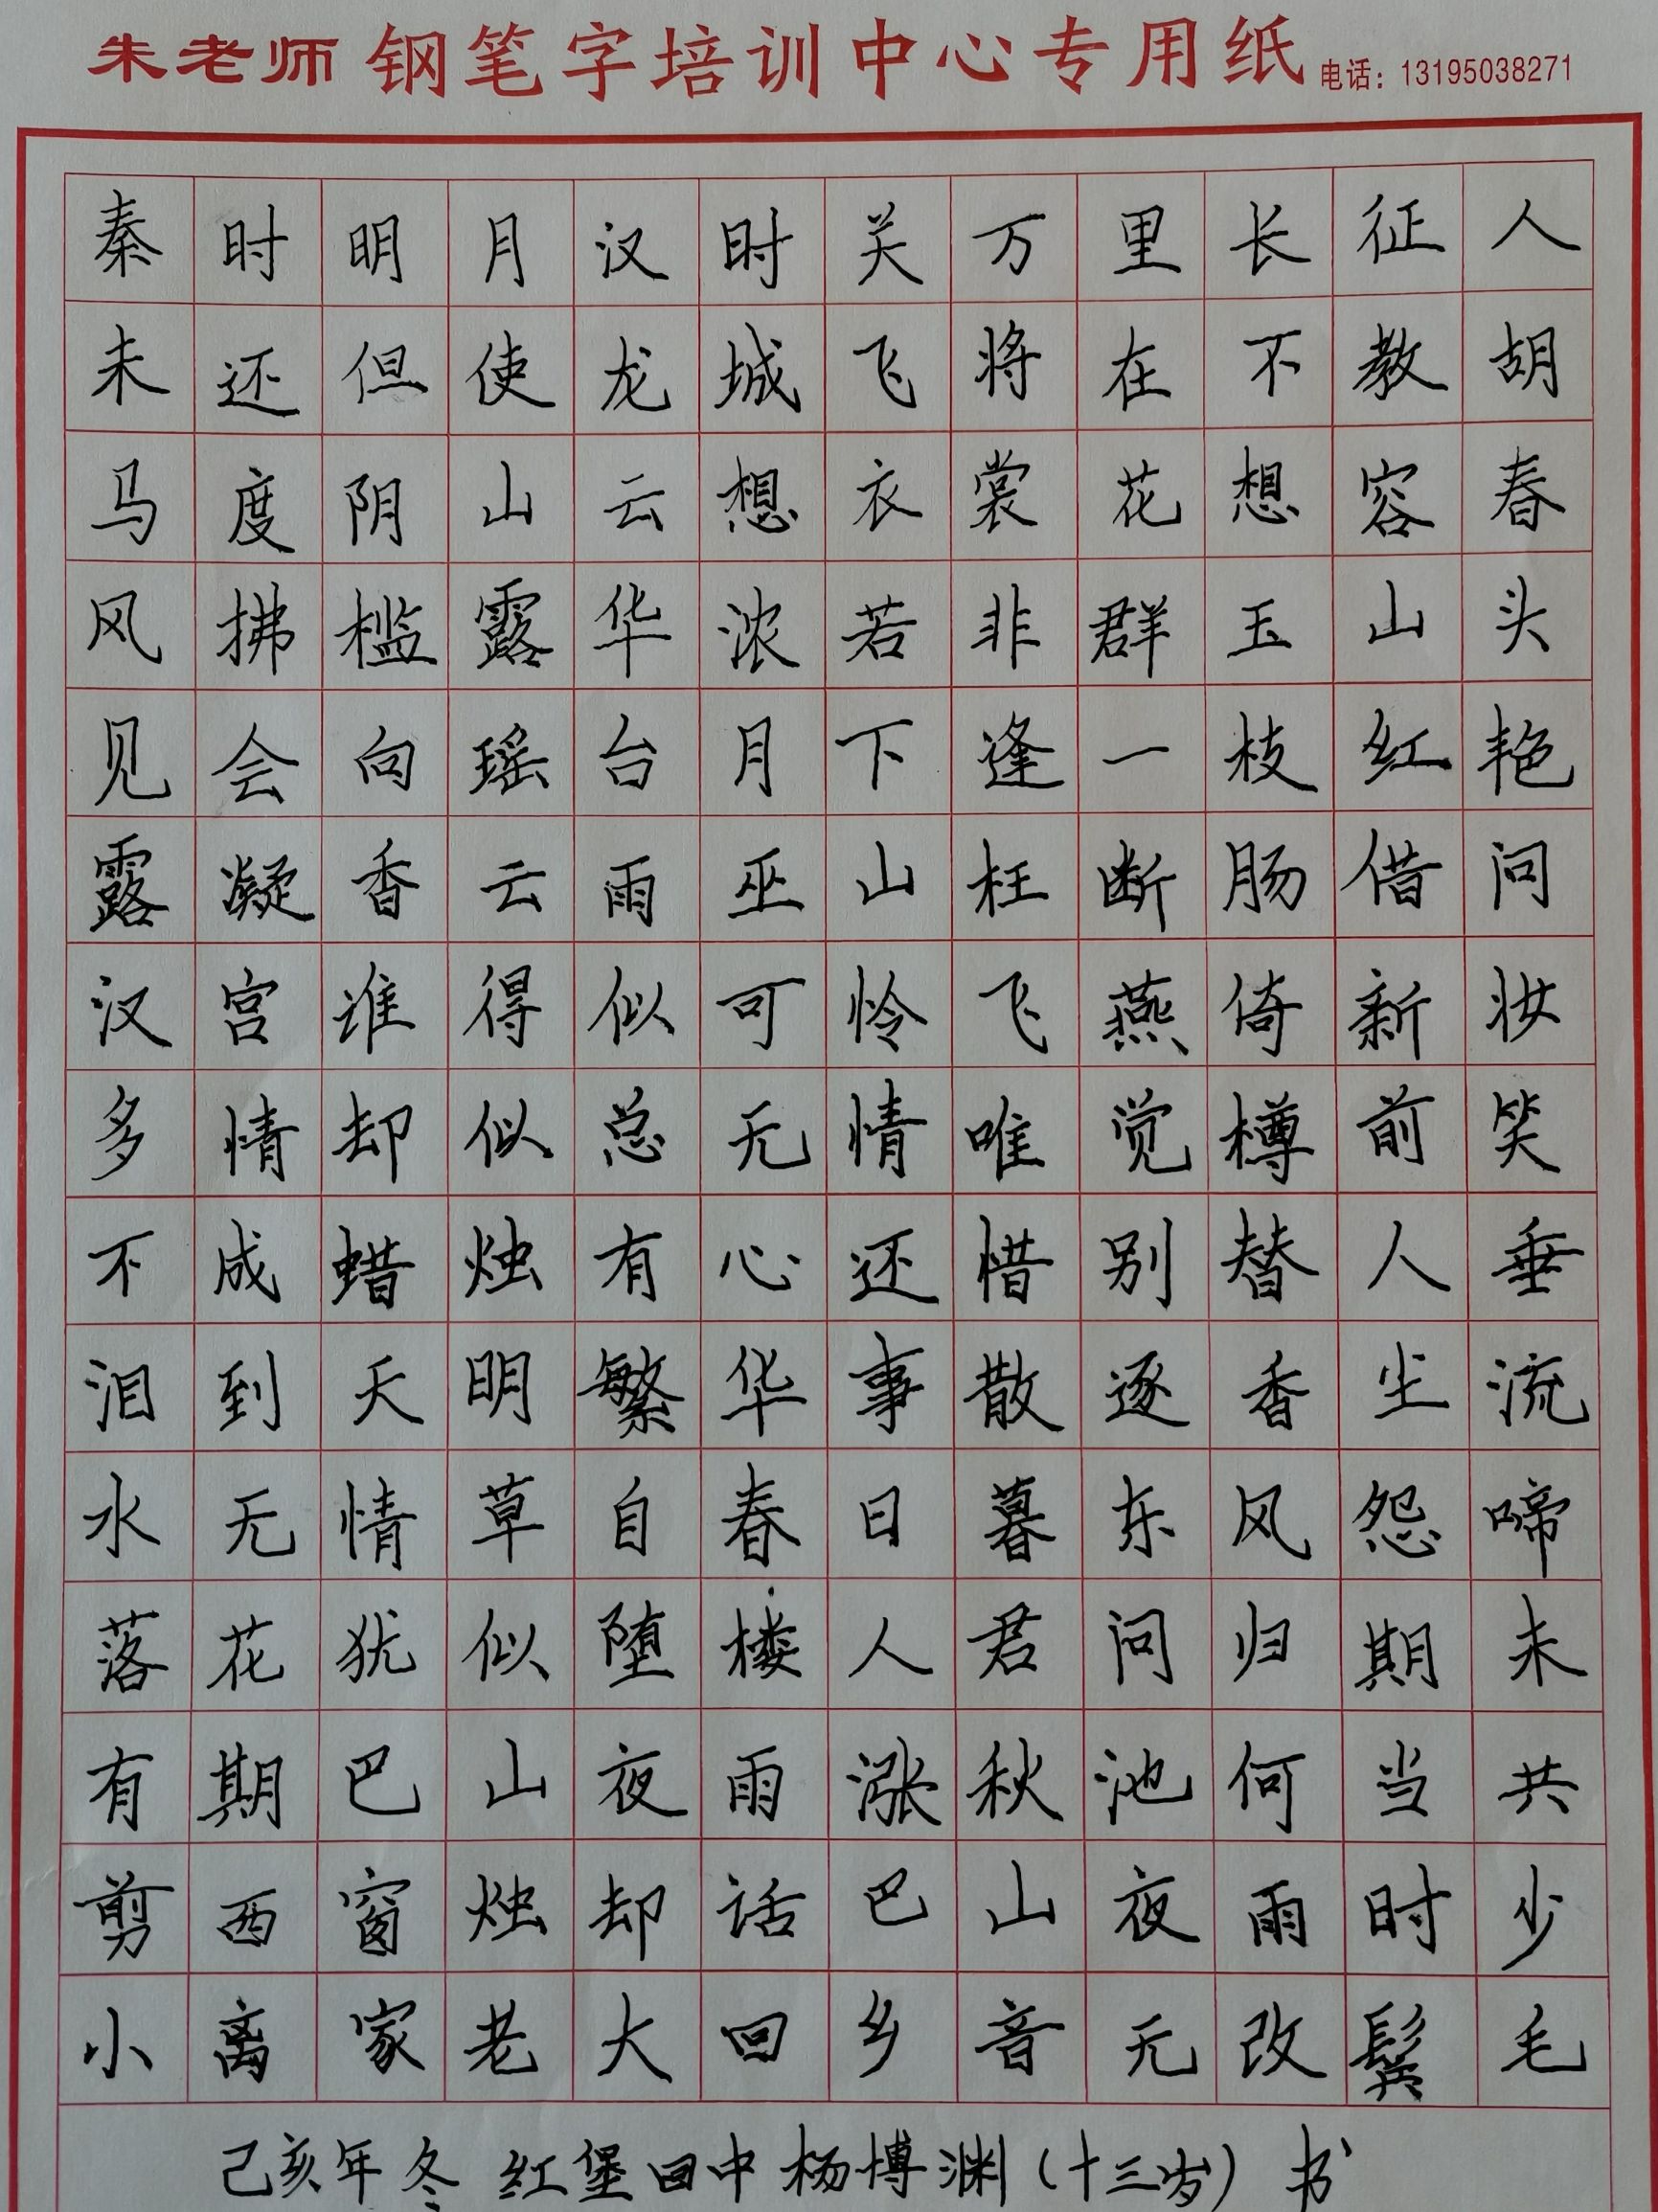 朱老师钢笔字培训中心专用纸 电话：13195038271
秦时明月汉时关万里长征人
未还但使龙城飞将在不教胡
马度阴山云想衣裳花想容春
风拂槛露华浓若非群玉山头
见会向瑶台月下逢一枝红艳
露凝香云雨巫山枉断肠借问
汉宫谁得似可怜飞燕倚新妆
多情却似总无情唯觉樽前笑
不成蜡烛有心还惜别替人垂
泪到天明繁华事散逐香尘流
水无情草自春日暮东风怨啼
落花犹似堕楼人君问归期未
有期巴山夜雨涨秋池何当共
剪西窗烛却话巴山夜雨时少
小离家老大回乡音无改鬓毛
己亥年冬 红堡田中杨博渊（十三岁）书